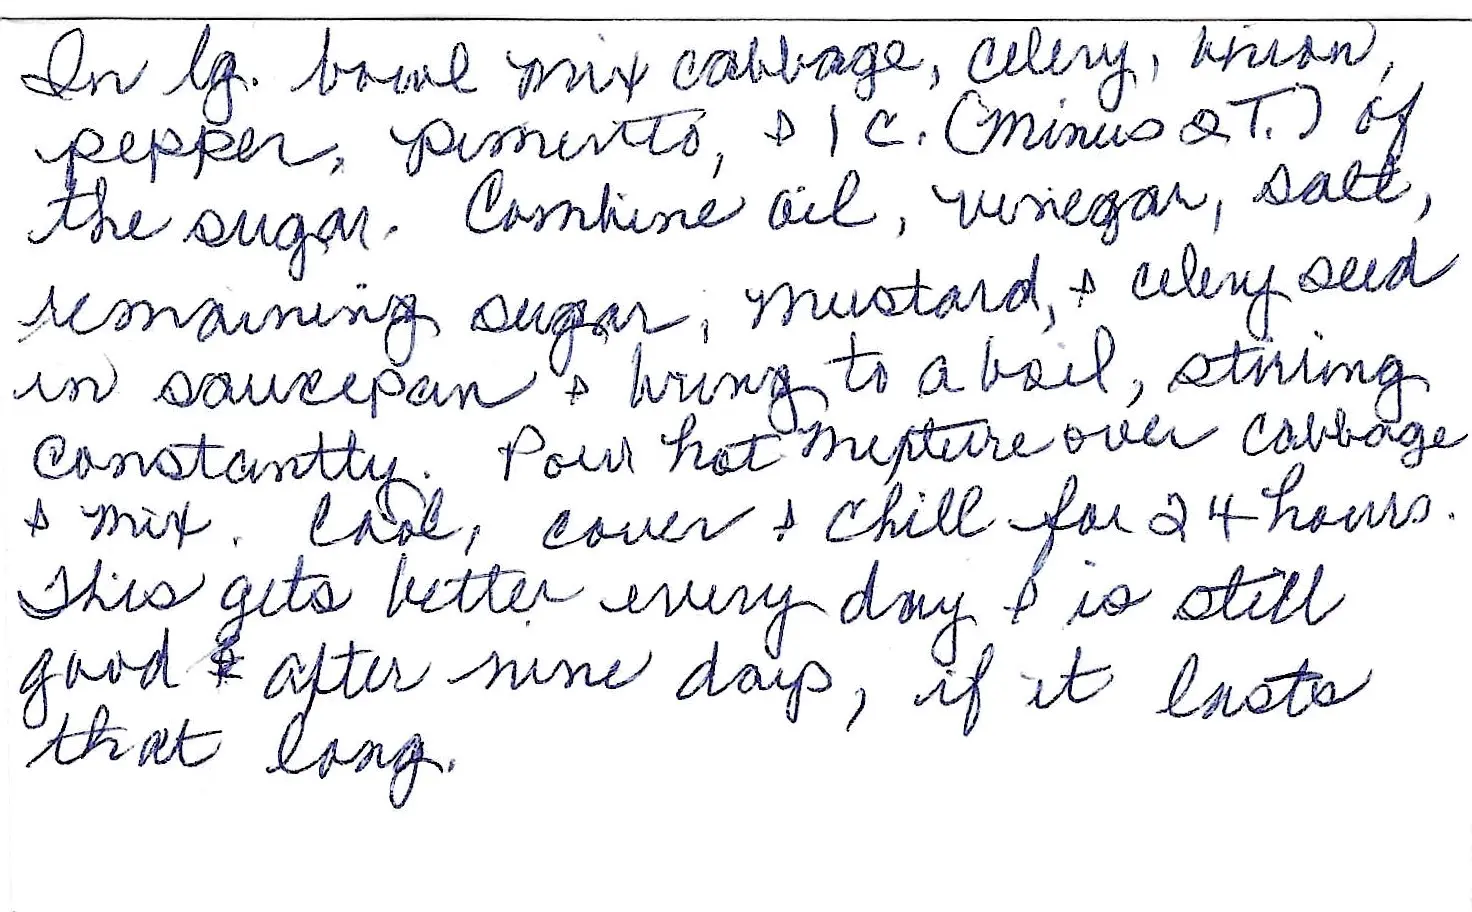 In lg. bowl mix cabbage, celery, onion,
pepper, pimento, & 1 C. (minus 2T.) of
the sugar. Combine oil, vinegar, salt,
remaining sugar, mustard, & celery seed
in saucepan & bring to a boil, stirring
constantly. Pour hot mixture over cabbage
& mix. Cool, cover & chill for 24 hours.
This gets better every day & is still
good after nine days, if it lasts
that long.